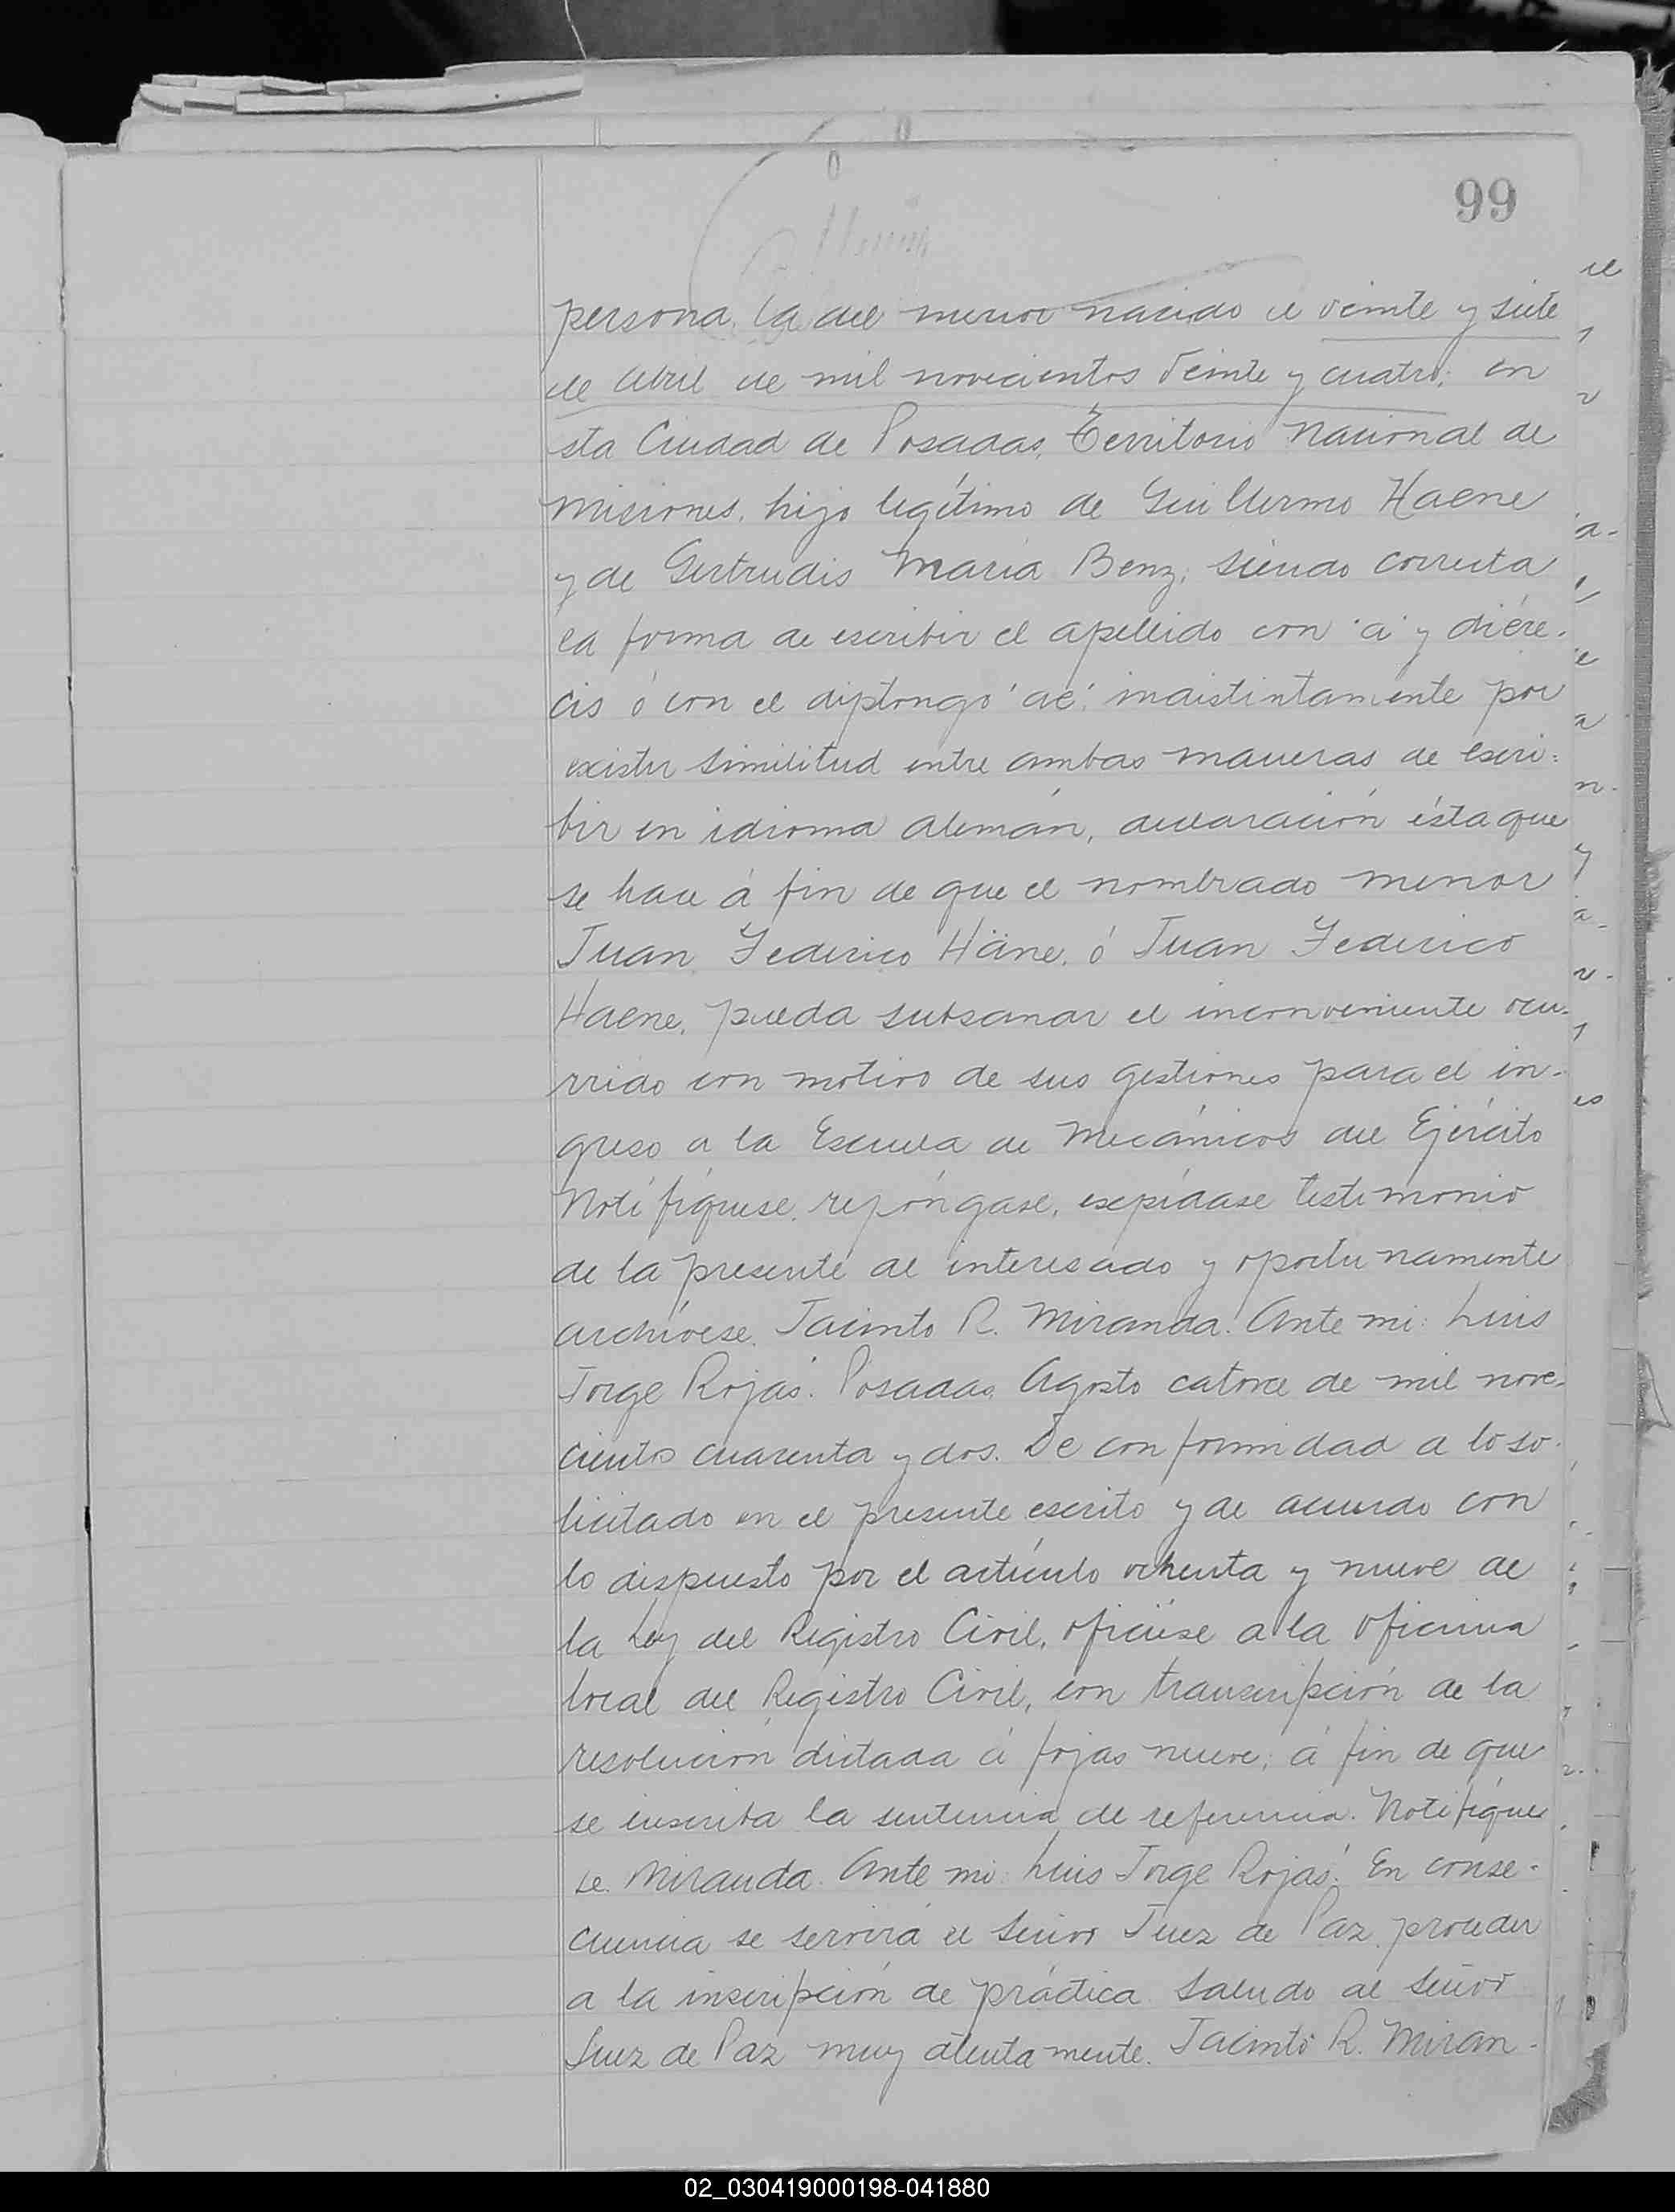 99
persona, la del menor nacido el veinte y siete
de Abril de mil novecientos veinte y cuatro, en
sta Ciudad de Posadas, Territorio Nacional de
Misiones, hijo legítimo de Guillermo Haene
y de Gertrudis María Benz; siendo correcta
la forma de escribir el apellido con "a" y diére-
cis ó con el diptongo "ae", indistintamente por
existir similitud entre ambas maneras de escri-
bir en idioma alemán, declaración ésta que
se hace á fin de que el nombrado menor
Juan Federico Häne, ó Juan Federico
Haene, pueda subsanar el inconveniente ocu-
rrido con motivo de sus gestiones para el in-
greso a la Escuela de Mecánicos del Ejército
Notifíquese, repóngase, expídase testimonio
de la presente al interesado y oportunamente
archívese. Jacinto R. Miranda. Ante mi: Luis
Jorge Rojas". Posadas, Agosto catorce de mil nove-
cientos cuarenta y dos. De conformidad a lo so-
licitado en el presente escrito y de acuerdo con
lo dispuesto por el artículo ochenta y nueve de
la Ley del Registro Civil, ofíciese a la Oficina
local del Registro Civil, con transcripción de la
resolución dictada á fojas nueve, á fin de que
se inscriba la sentencia de referencia. Notifíque
se. Miranda. Ante mi: Luis Jorge Rojas". En conse-
cuencia se servirá el Señor Juez de Paz, proceder
a la inscripción de práctica. Saludo al Señor
Juez de Paz muy atentamente. Jacinto R. Miran-
02_030419000198-041880